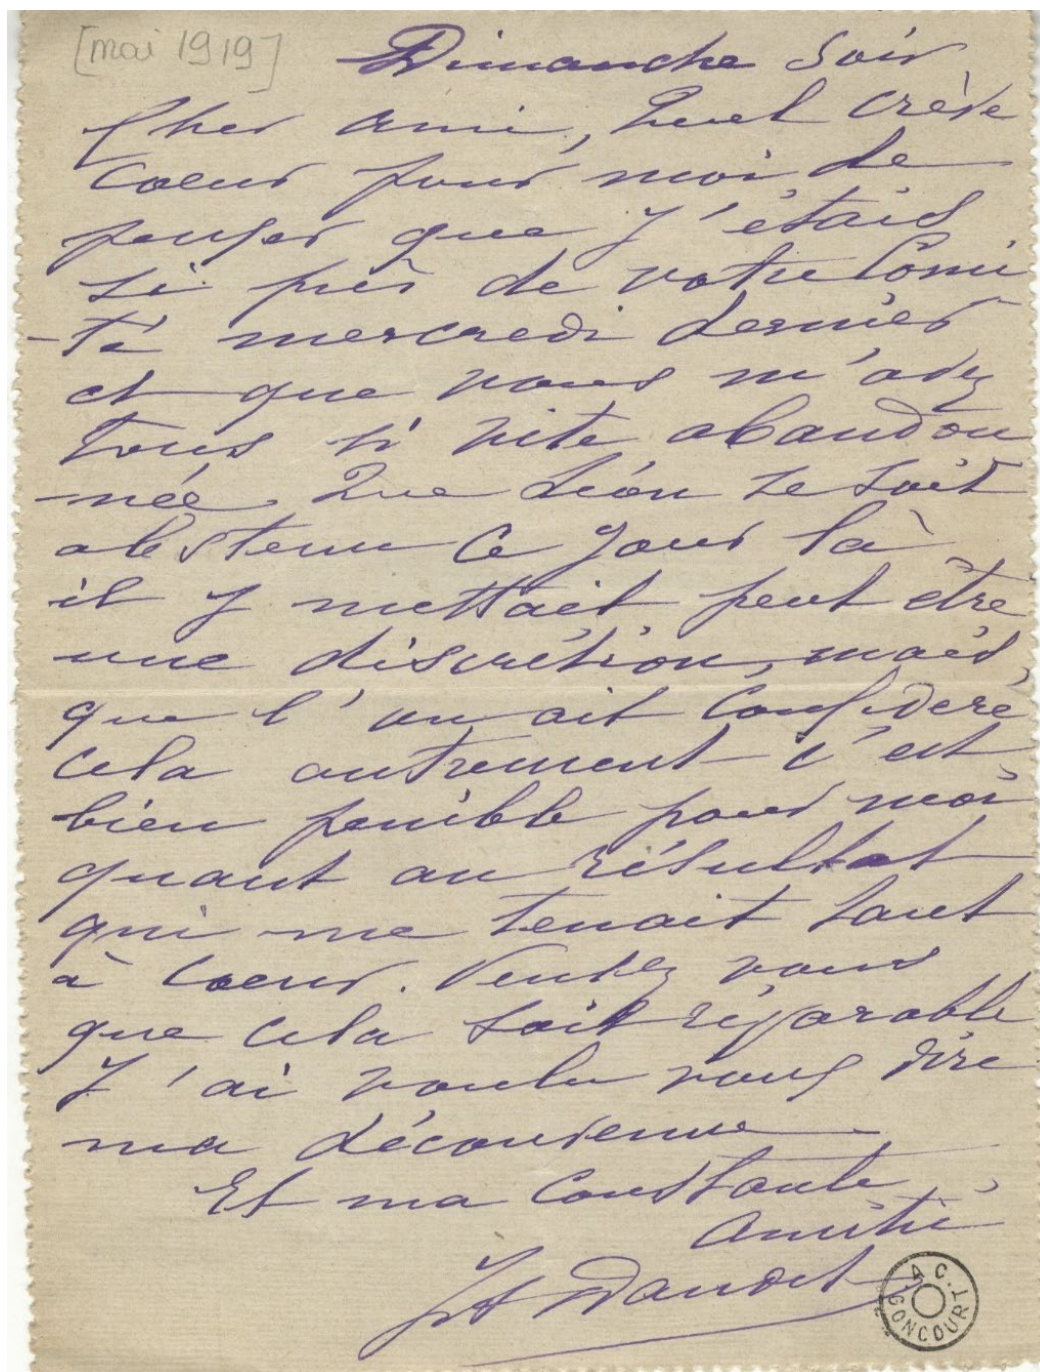 [mai 1919]
Dimanche Soir
Cher ami, Quel crève
coeur pour moi de
penser que j'étais
si près de votre Comi
-té mercredi dernier
et que vous m'avez
tous si vite abandon
-née. Que Léon se soit
abstenu ce jour là
il y mettait peut être
une discrétion, mais
que l'on ait considéré
cela autrement c'est
bien penible pour moi
quant au résultat
qui me tenait tant
à coeur. Pensez vous
que cela soit réparable
J'ai voulu vous dire
ma déconvenue
Et ma constante
amitié
JA Daudet
AC. GONCOURT.